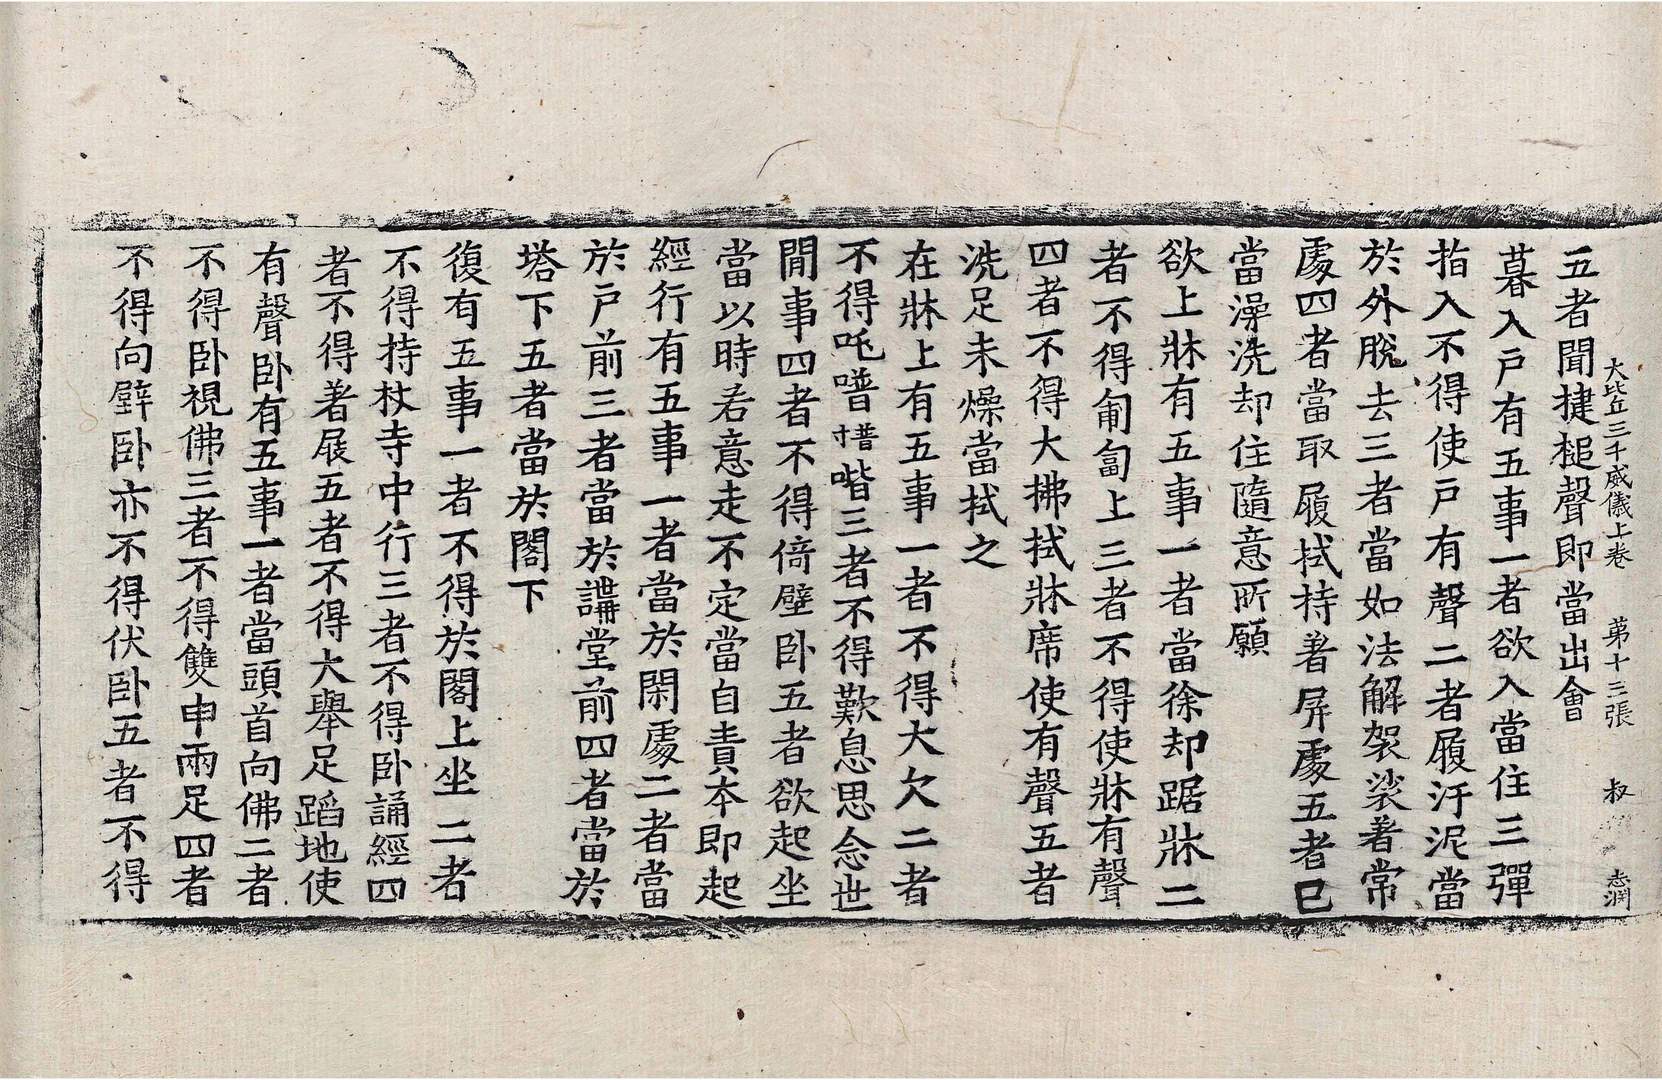 大比丘三千威儀上卷　第十三張　叔　志渕
五者聞揵槌聲即當出會
暮入戶有五事一者欲入當住三彈
指入不得使戶有聲二者履汙泥當
於外脫去三者當如法解袈裟著常
處四者當取履拭持著屏處五者已
當澡洗却住隨意所願
欲上牀有五事一者當徐却踞牀二
者不得匍匐上三者不得使牀有聲
四者不得大拂拭牀席使有聲五者
洗足未燥當拭之
在牀上有五事一者不得大欠二者
不得吒噆喈三者不得歎息思念世
間事四者不得倚壁卧五者欲起坐
當以時若意走不定當自責夲即起
經行有五事一者當於閑處二者當
於戶前三者當於講堂前四者當於
塔下五者當於閣下
復有五事一者不得於閣上坐二者
不得持杖寺中行三者不得卧誦經四
者不得著屐五者不得大舉足蹈地使
有聲卧有五事一者當頭首向佛二者
不得卧視佛三者不得雙申兩足四者
不得向壁卧亦不得伏卧五者不得